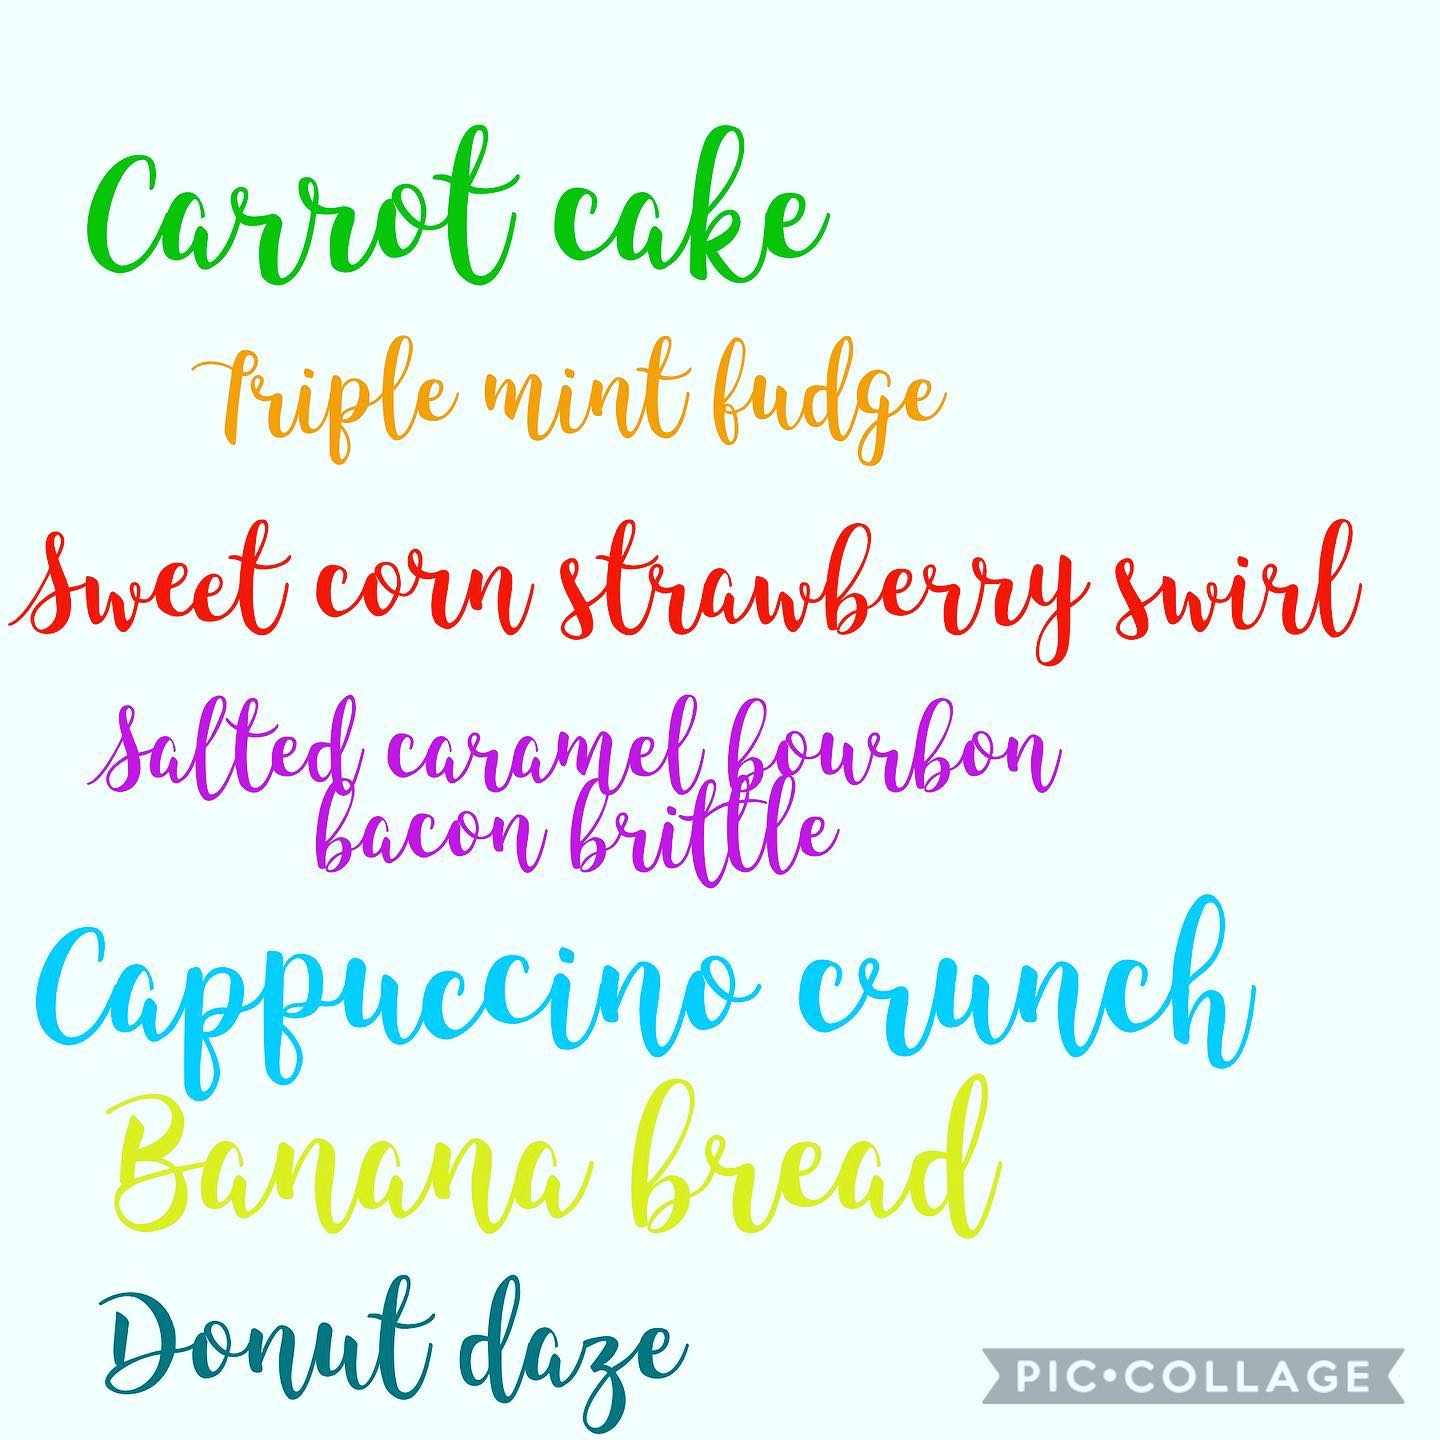 Carrot cake
Triple mint fudge
Sweet corn strawberry swirl
Salted caramel bourbon
bacon brittle
Cappuccino crunch
Banana bread
Donut daze
PIC•COLLAGE